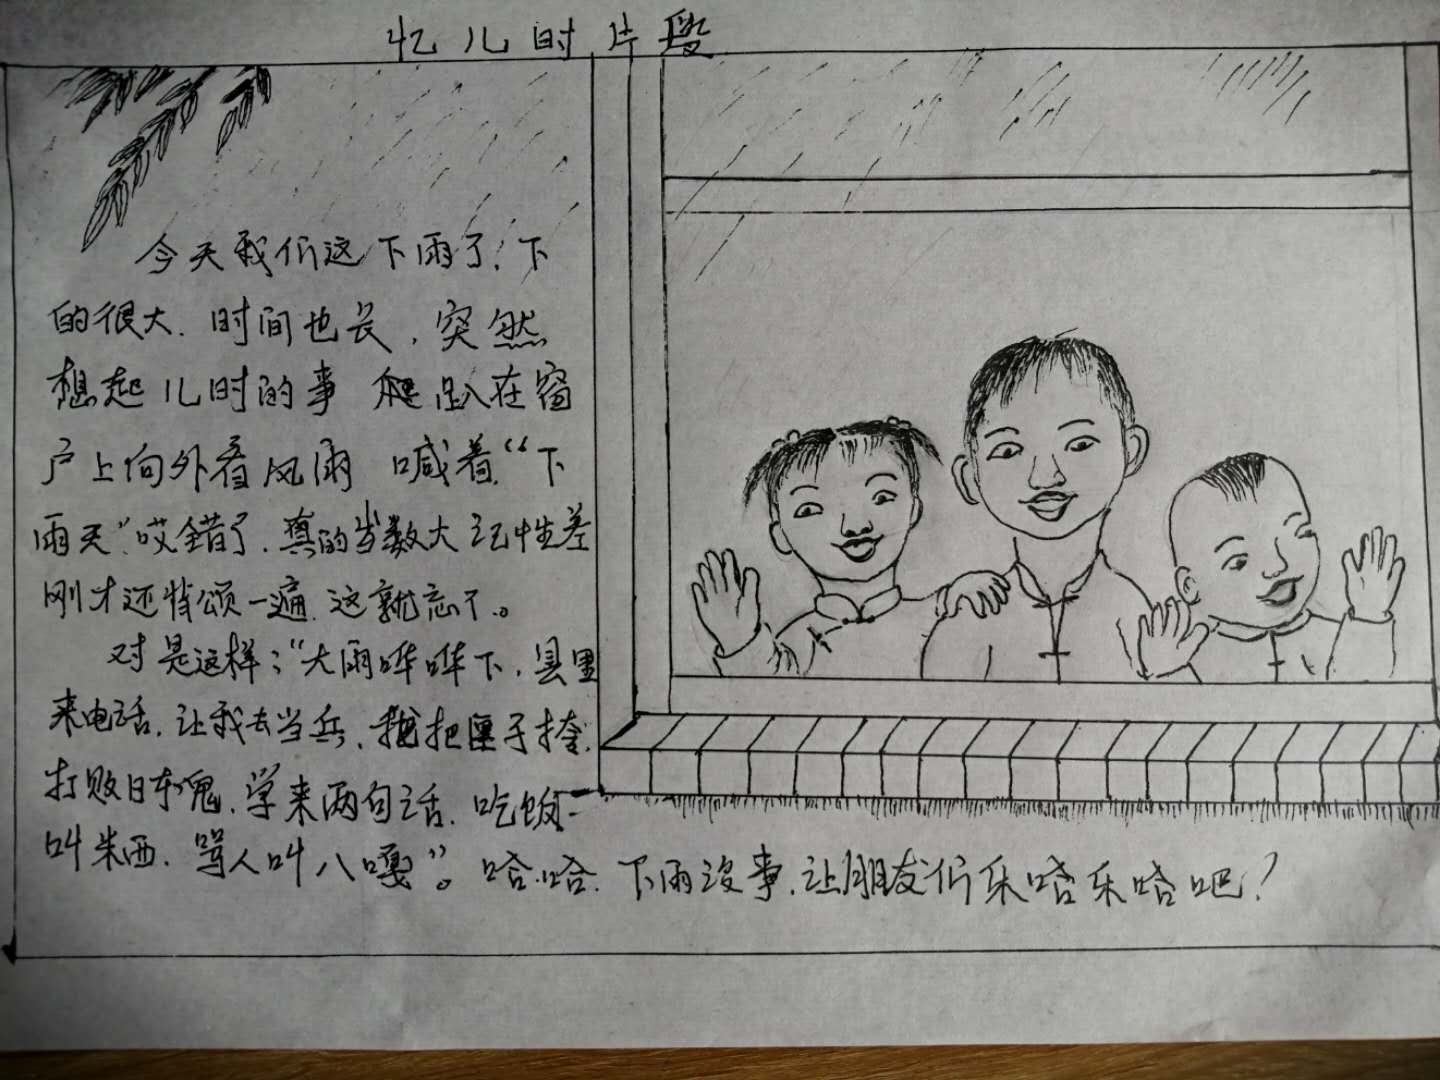 忆儿时片段
今天我们这下雨了.下
的很大.时间也长,突然
想起儿时的事 爬趴在窗
户上向外看风雨 喊着"下
雨天".哎错了.真的岁数大记性差
刚才还背颂一遍.这就忘了。
对是这样:"大雨哗哗下,县里
来电话.让我去当兵,把匣子挎.
打败日本鬼.学来两句话.吃饭
叫米西.骂人叫八嘎"。哈哈.下雨没事.让朋友们乐哈乐哈吧!